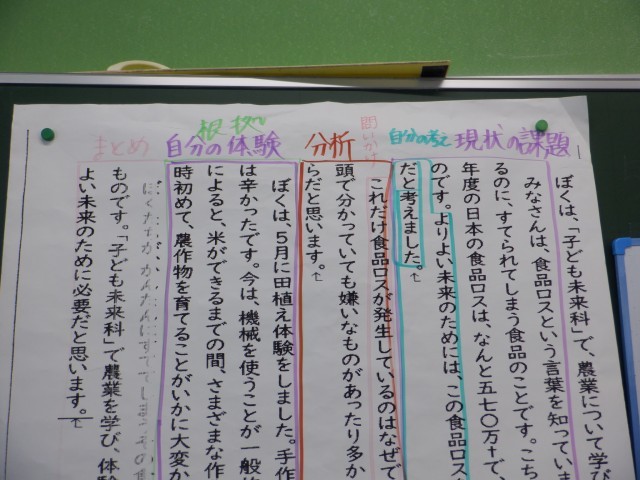 現状の課題
自分の考え
問いかけ
分析
根拠
自分の体験
まとめ
ぼくは、「子ども未来科」で、農業について学び
みなさんは、食品ロスという言葉を知っていま
るのに、すてられてしまう食品のことです。こち
年度の日本の食品ロスは、なんと五七〇万tで、
のです。よりよい未来のためには、この食品ロス
だと考えました。
これだけ食品ロスが発生しているのはなぜで
頭で分かっていても嫌いなものがあったり多か
らだと思います。
ぼくは、5月に田植え体験をしました。手作
は辛かったです。今は、機械を使うことが一般的
によると、米ができるまでの間、さまざまな作
時初めて、農作物を育てることがいかに大変か
ぼくたちが、かんたんにすててしまう
ものです。「子ども未来科」で農業を学び、体験
よい未来のために必要だと思います。